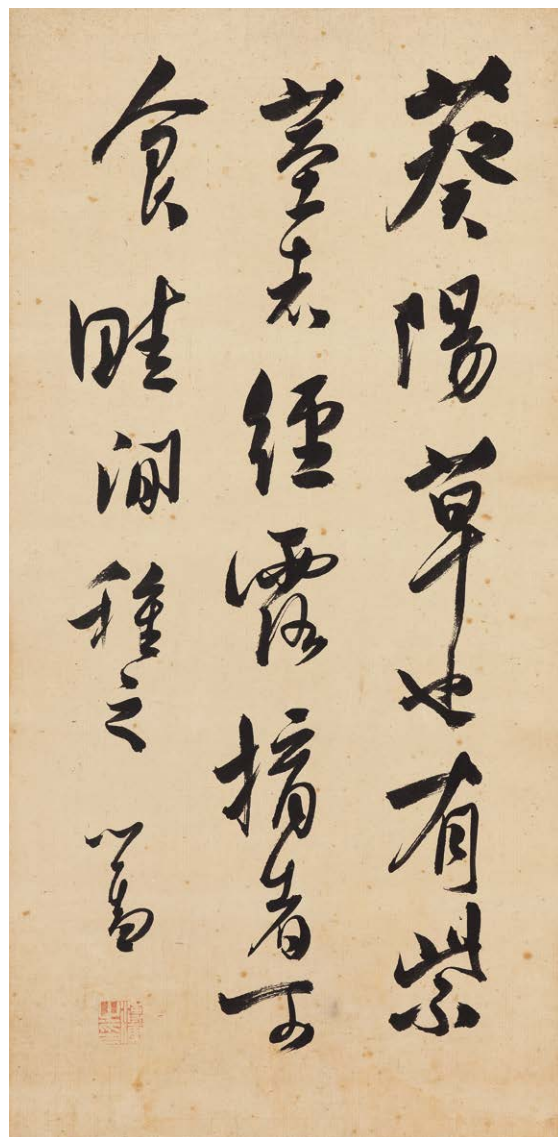 葵陽草也有紫
莖者經露摘者可
食畦間種之 心畬